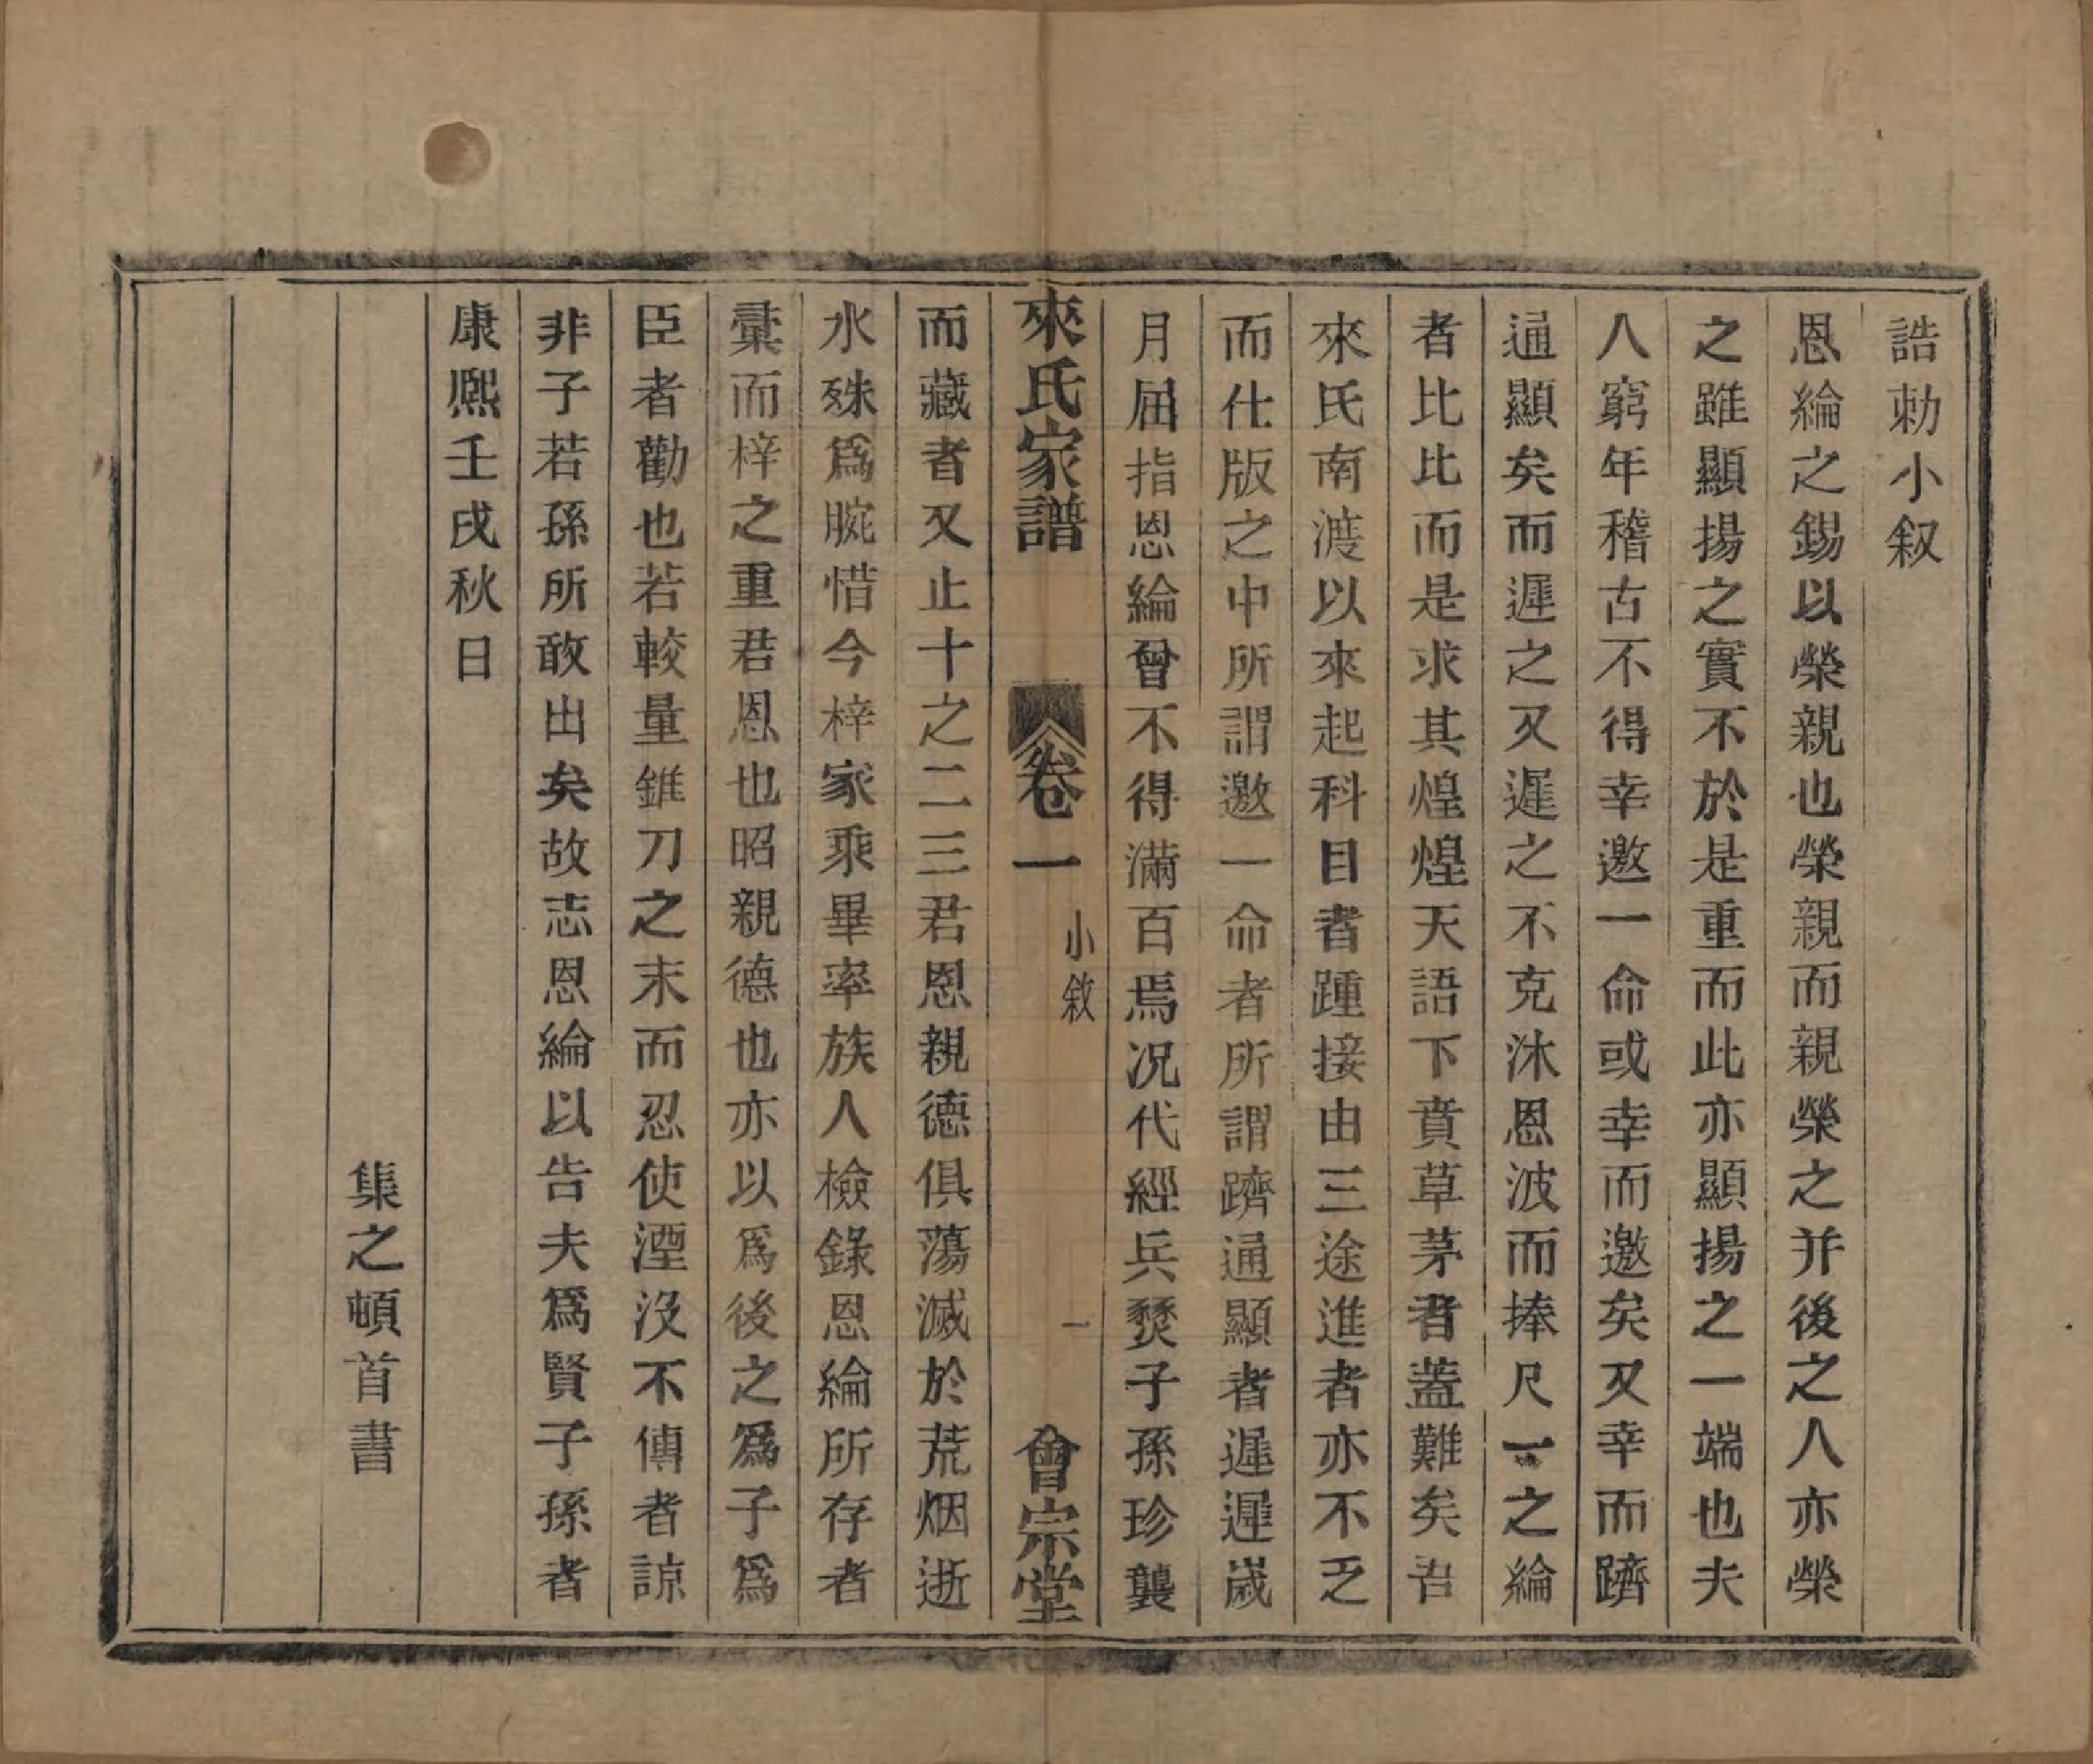 誥勅小叙
恩綸之錫以榮親也榮親而親榮之并後之人亦榮
之雖顯揚之實不於是重而此亦顯揚之一端也夫
人窮年稽古不得幸邀一命或幸而邀矣又幸而躋
通顯矣而遲之又遲之不克沐恩波而捧尺一之綸
者比比而是求其煌煌天語下賁草茅者蓋難矣吾
來氏南渡以來起科目者踵接由三途進者亦不乏
而仕版之中所謂邀一命者所謂躋通顯者遲遲歲
月屆指恩綸曾不得滿百焉况代經兵燹子孫珍襲
來氏家譜 卷一 小敘 一 會宗堂
而藏者又止十之二三君恩親德俱蕩滅於荒烟逝
水殊爲腕惜今梓家乘畢率族人檢錄恩綸所存者
彙而梓之重君恩也昭親德也亦以爲後之爲子爲
臣者勸也若較量錐刀之末而忍使湮沒不傳者諒
非子若孫所敢出矣故志恩綸以告夫爲賢子孫者
康熙壬戌秋日
集之頓首書